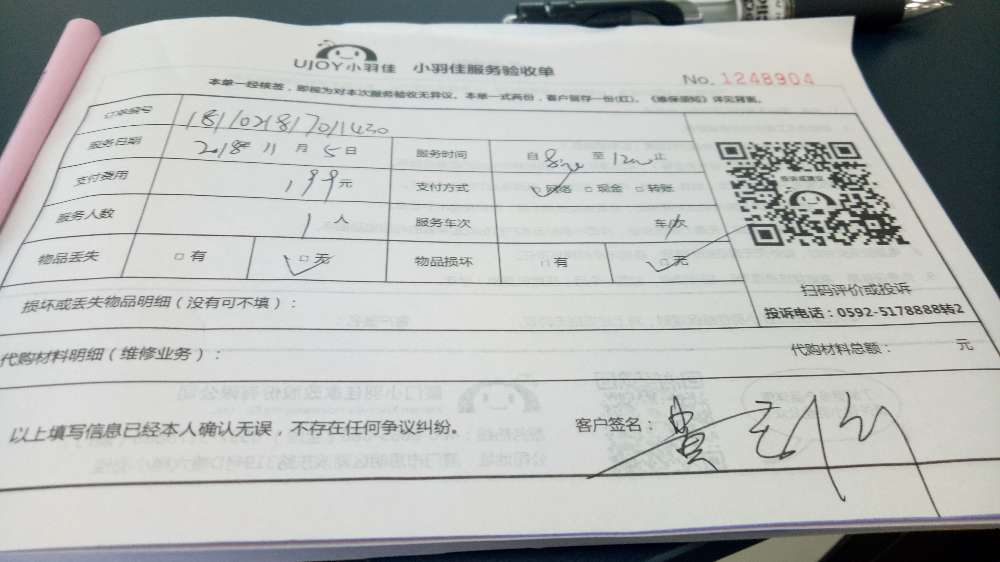 UJOY小羽佳 小羽佳服务验收单
No. 1248904
本单一经核签，即视为对本次服务验收无异议。本单一式两份，客户留存一份(红)。《维保须知》详见背面。
订单编号 181102181701430
服务日期 2018年 11月 5日 服务时间 自 至 止
支付费用 199元 支付方式 □网络 □现金 □转账
服务人数 1人 服务车次 车/次
物品丢失 □有 □无 物品损坏 □有 □无
告诉或建议
扫码评价或投诉
投诉电话：0592-5178888转2
损坏或丢失物品明细（没有可不填）：
代购材料明细（维修业务）： 代购材料总额： 元
以上填写信息已经本人确认无误，不存在任何争议纠纷。 客户签名：